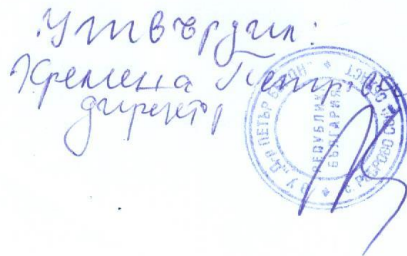 Утвърдил:
Кремена Петрова
директор
О У "Д-Р ПЕТЪР БЕРОН"
РЕПУБЛИКА
БЪЛГАРИЯ